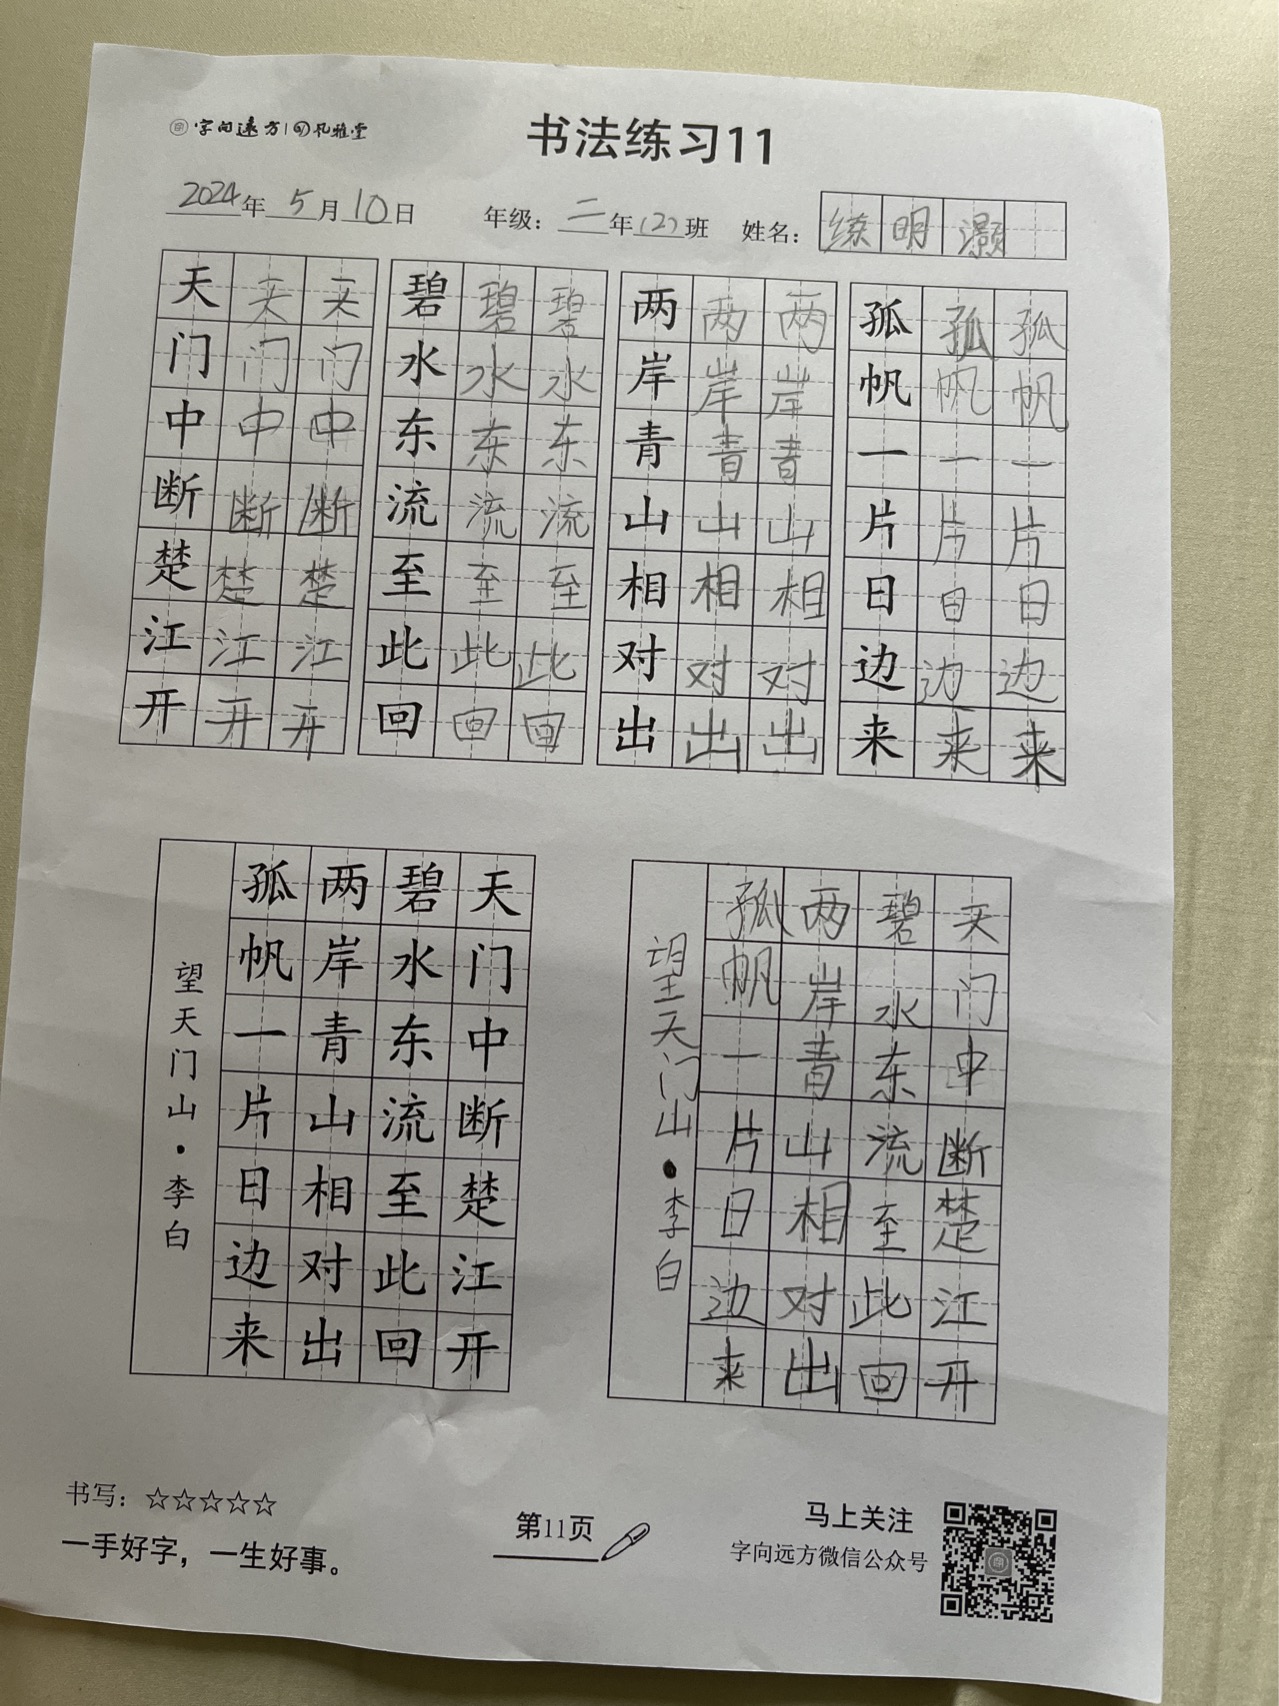 字向远方 | 孔雅堂
书法练习11
2024年5月10日 年级：二年(2)班 姓名：练明灏
天天天 碧碧碧 两两两 孤孤孤
门门门 水水水 岸岸岸 帆帆帆
中中中 东东东 青青青 一一一
断断断 流流流 山山山 片片片
楚楚楚 至至至 相相相 日日日
江江江 此此此 对对对 边边边
开开开 回回回 出出出 来来来
天门中断楚江开
碧水东流至此回
两岸青山相对出
孤帆一片日边来
望天门山·李白
天门中断楚江开
碧水东流至此回
两岸青山相对出
孤帆一片日边来
望天门山·李白
书写：☆☆☆☆☆
一手好字，一生好事。
第11页
马上关注
字向远方微信公众号